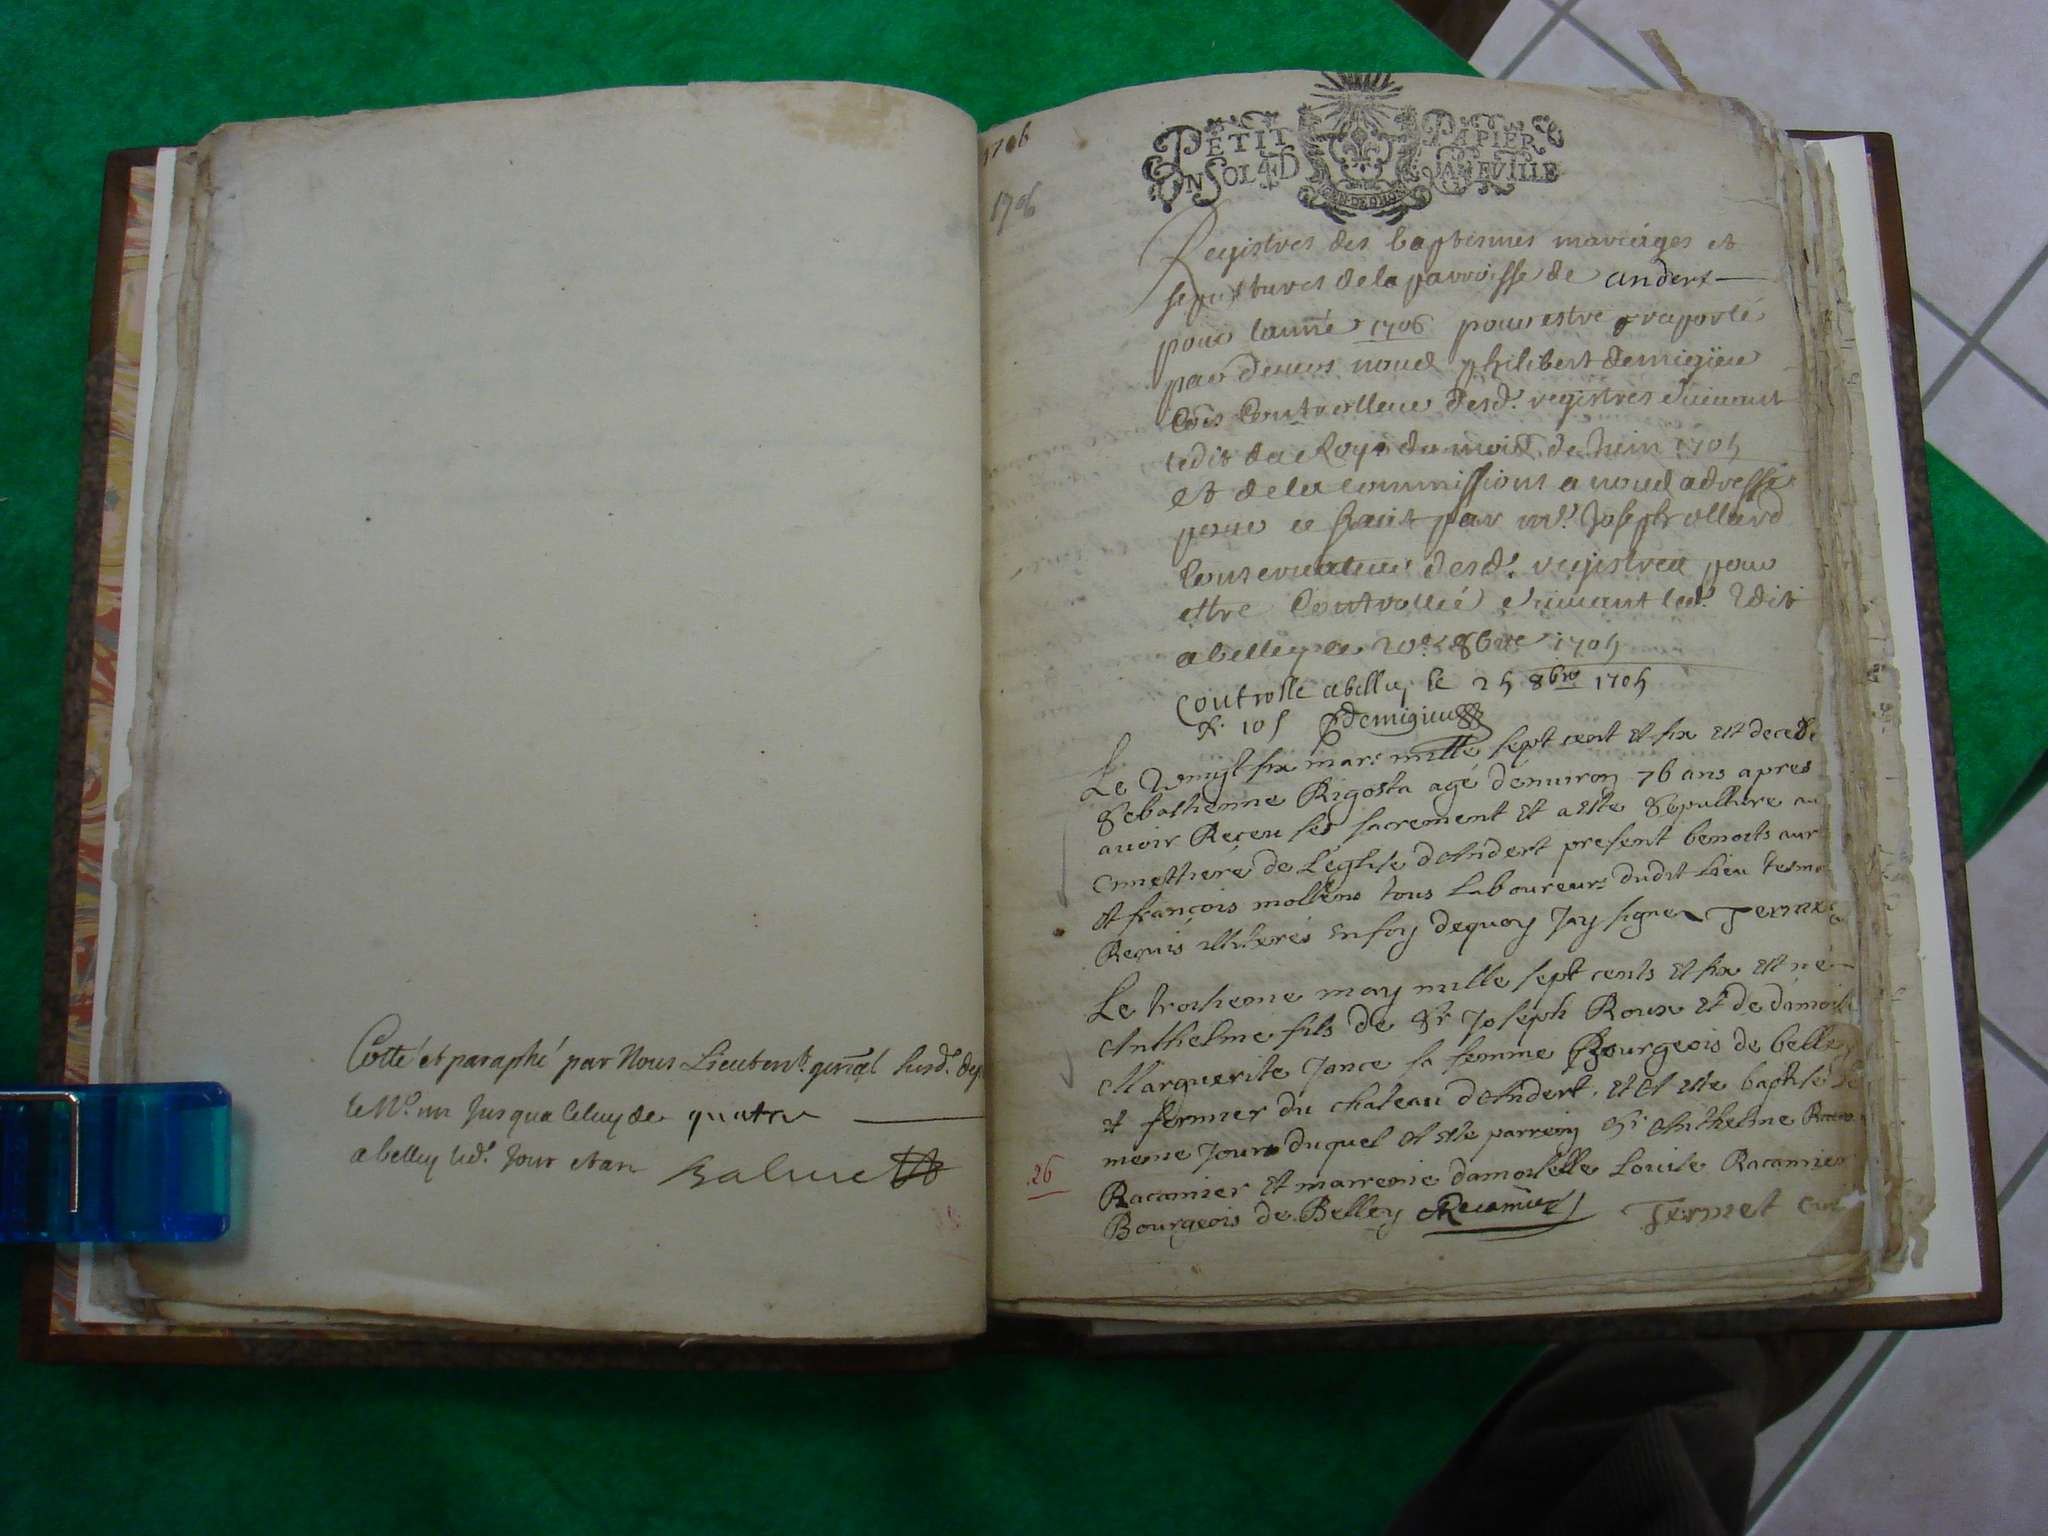 Cotté et paraphé par Nous Lieuten.t gnal susd.
le N.o un Jusqua Celuy de quatre
a belley led. Jour et an
1706
1706
PETIT PAPIER
UN SOL 4 D LA FEVILLE
Registres des baptesmes mariages et
sepultures de la parroisse de andert
pour lanné 1706 pour estre raporté
par deuers nous philibert demigieu
Con.er Controlleur desd. registres suiuant
ledit du Roy du mois de Juin 1705
et de la commission a nous adressé
pour ce fait par m.e Joseph ollard
Conseruateur desd. registres pour
estre Controllé suiuant led. Edit
a belley le 8bre 1705
Controlle abelley le 25 8bre 1705
R. 10 s Demigieu
Le Vingt six mars mille sept cent et six est decedé
Sebastienne Rigosta agé denuiron 76 ans apres
auoir Receu ses sacrement et a esté Sepulture au
cimethiere de Leglise dAndert present benoits
et françois mollens tous Laboureurs dudit Lieu tesmo
Requis illiterés en foy dequoy Jay signe Termet
Le troisieme may mille sept cents et six est né
Anthelme fils de Sr Joseph Roux et de damoise
Marguerite Jance sa femme Bourgeois de belley
et fermier du chateau dAndert. et at este baptisé le
meme Jour duquel at este parrein Sr Anthelme
26
Racamier et marreine damoiselle Louise Racamier
Bourgeois de Belley Recamier Termet curé